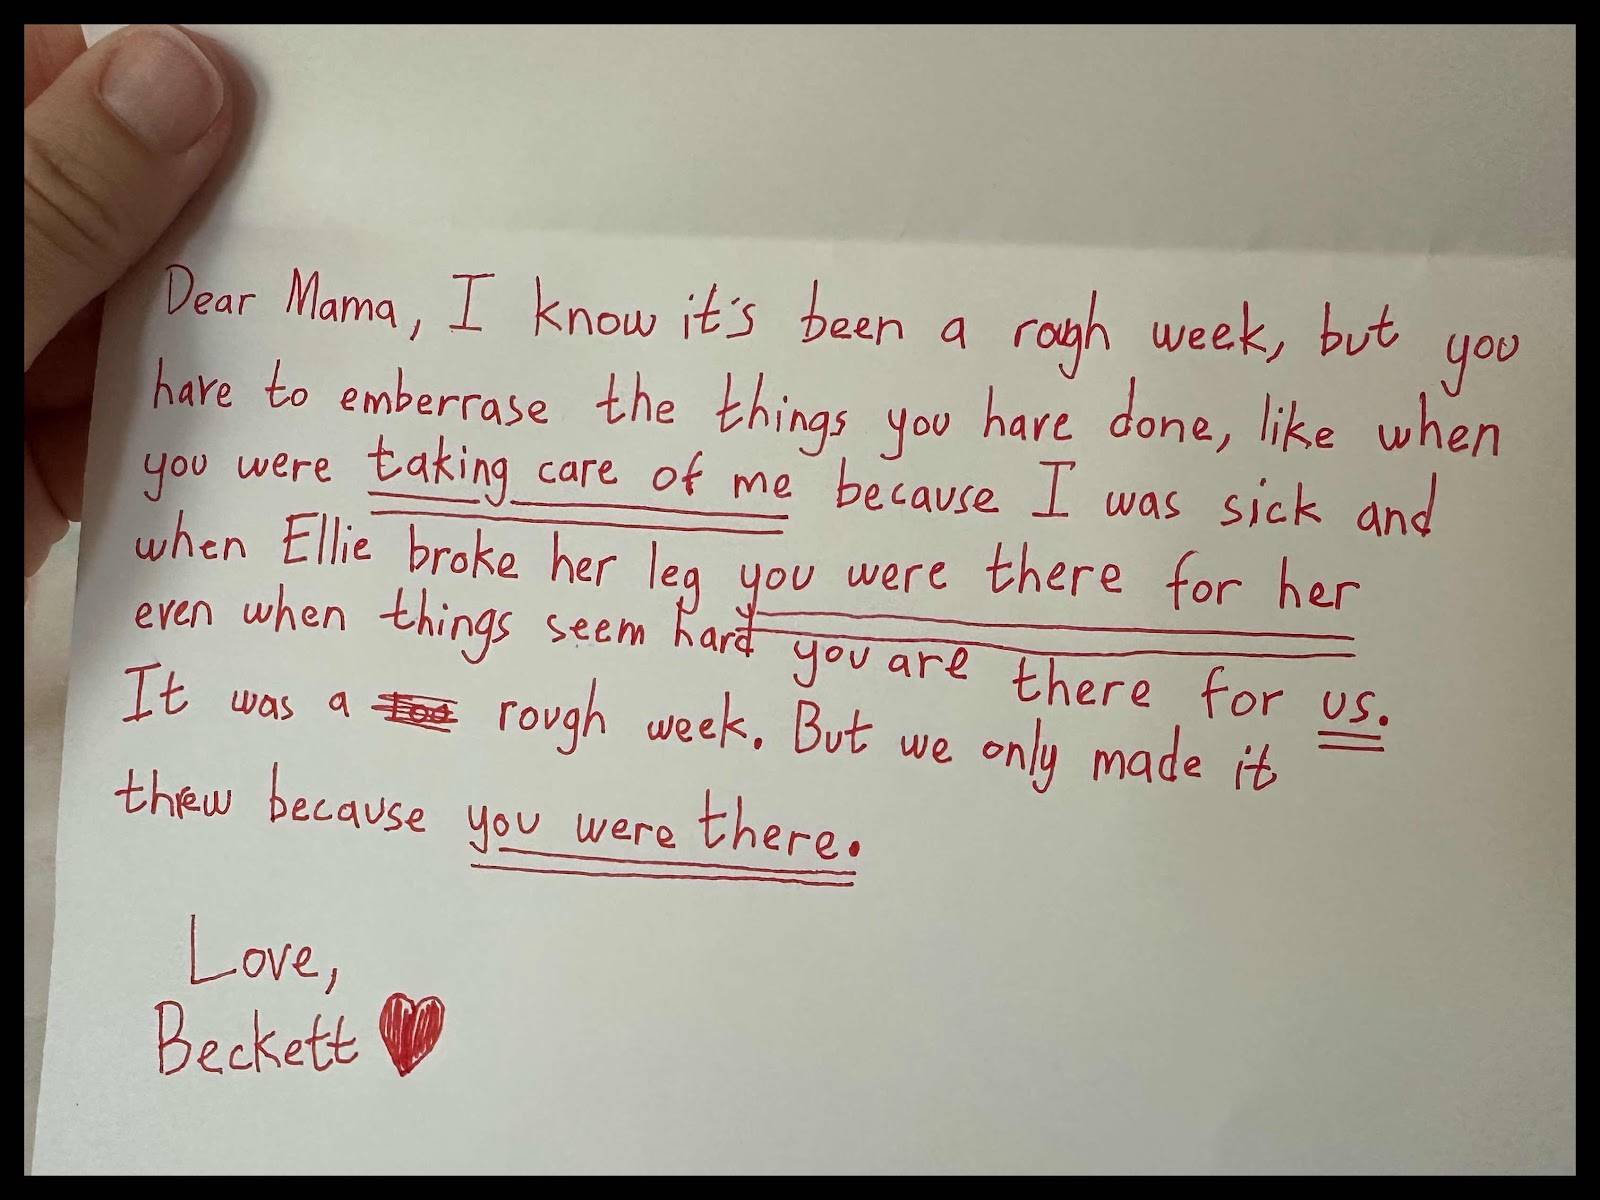 Dear Mama, I know it's been a rough week, but you
have to emberrase the things you have done, like when
you were taking care of me because I was sick and
when Ellie broke her leg you were there for her
even when things seem hard you are there for us.
It was a rough week. But we only made it
threw because you were there.
Love,
Beckett